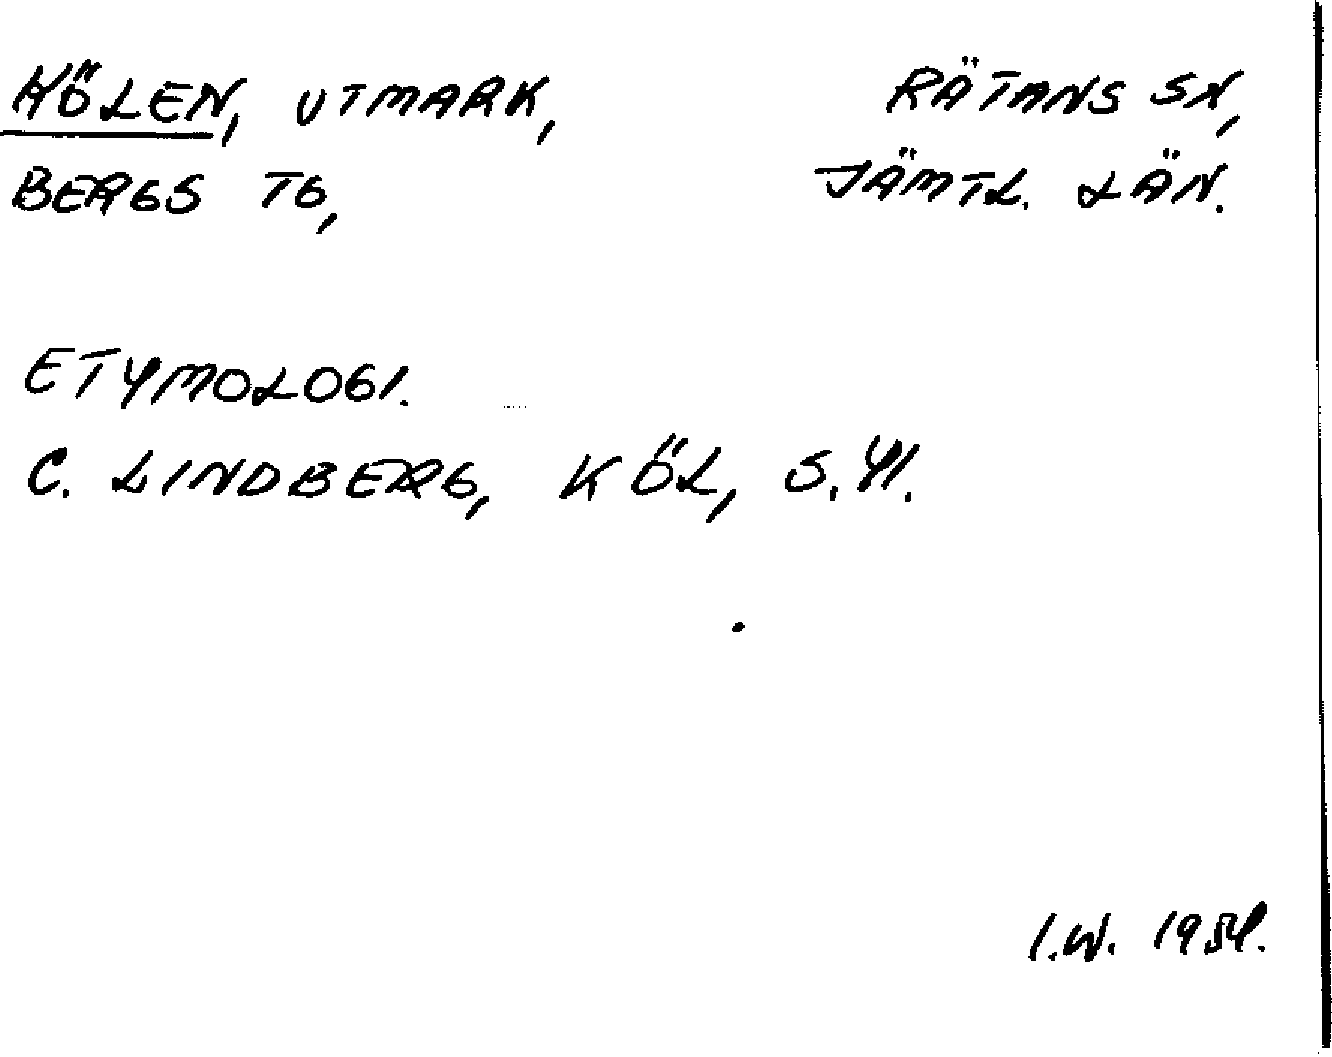 KÖLEN, UTMARK, RÄTANS SN,
BERGS TG, JÄMTL. LÄN.
ETYMOLOGI.
C. LINDBERG, KÖL, S. 41.
I.W. 1954.